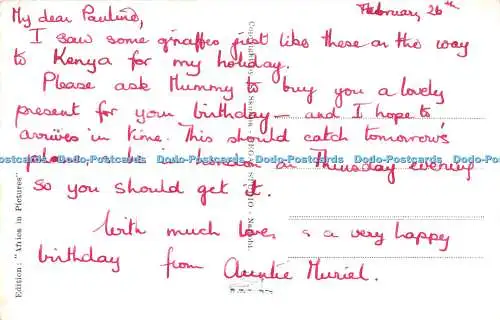 February 26th
My dear Pauline,
I saw some giraffes just like these on the way
to Kenya for my holiday.
Please ask Mummy to buy you a lovely
present for your birthday — and I hope to
arrives in time. This should catch tomorrow's
plane, London on Thursday evening
so you should get it.
With much love & a very happy
birthday from Auntie Muriel.
Edition: "Africa in Pictures"
Dodo-Postcards Dodo-Postcards Dodo-Postcards Dodo-Postcards Dodo-Postcards Dodo-Postcards